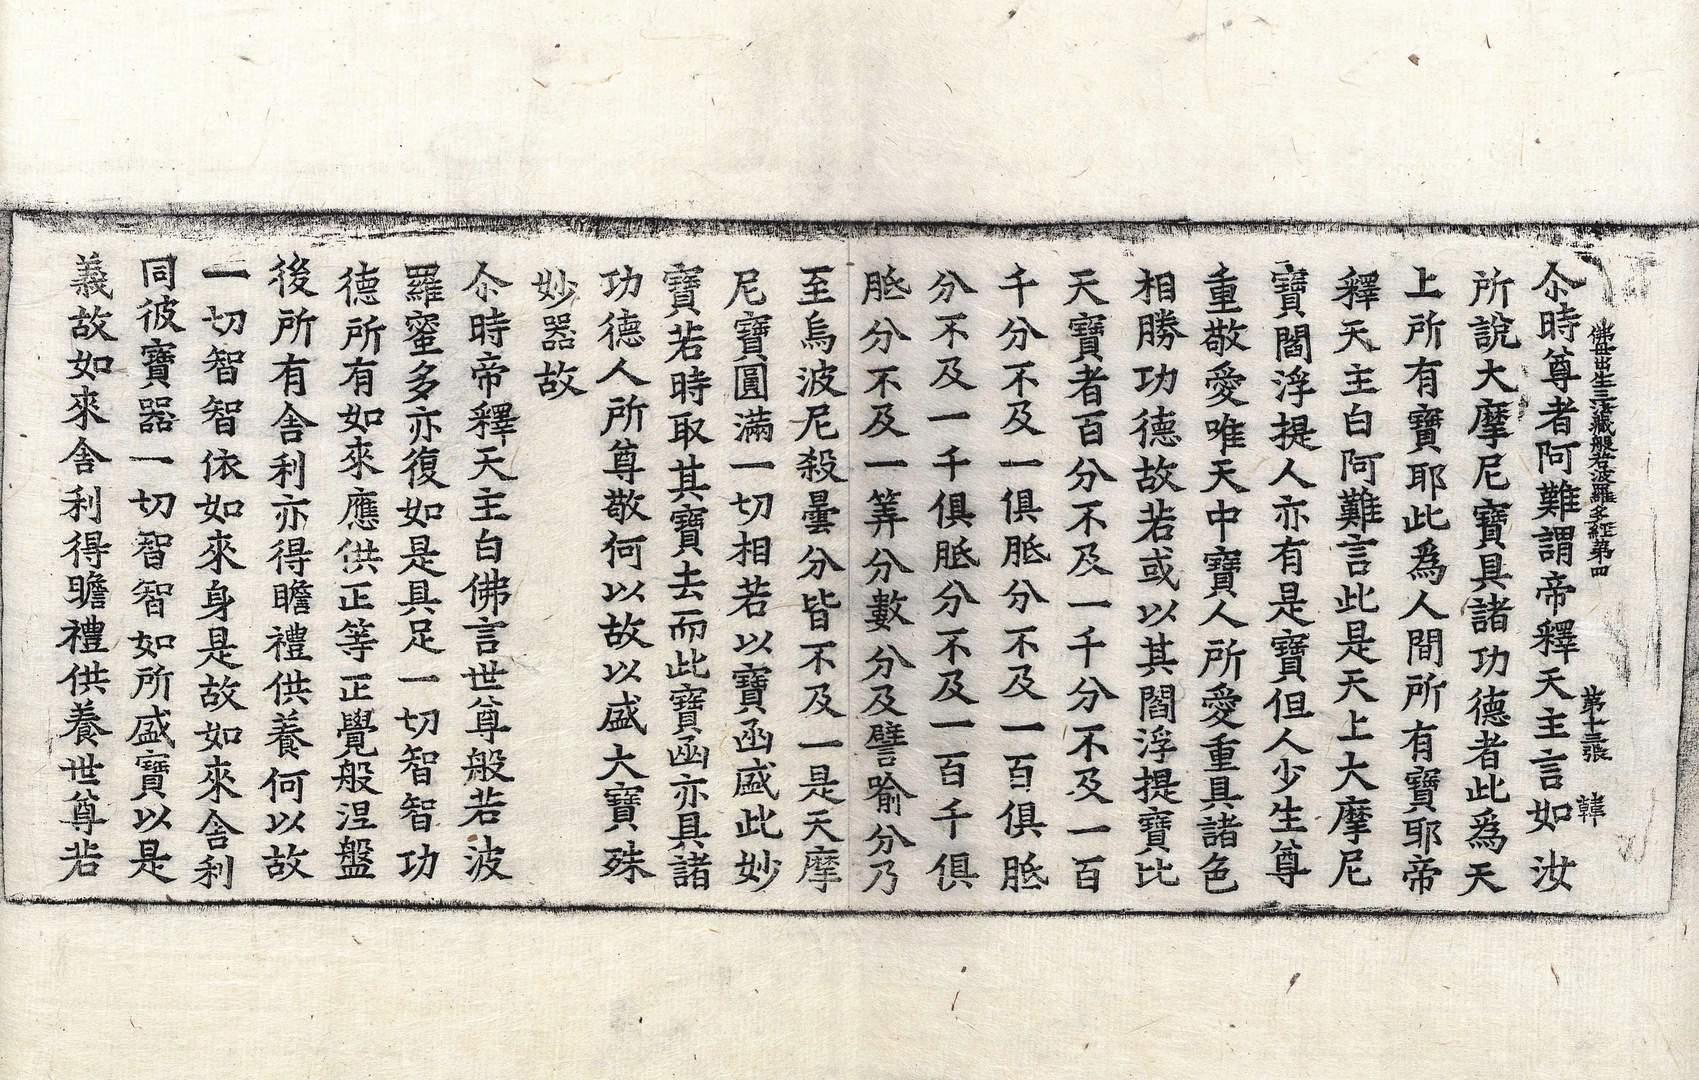 佛母出生三法藏般若波羅多經第四　第十三張　韓
尒時尊者阿難謂帝釋天主言如汝
所說大摩尼寶具諸功德者此爲天
上所有寶耶此爲人間所有寶耶帝
釋天主白阿難言此是天上大摩尼
寶閻浮提人亦有是寶但人少生尊
重敬愛唯天中寶人所愛重具諸色
相勝功德故若或以其閻浮提寶比
天寶者百分不及一千分不及一百
千分不及一俱胝分不及一百俱胝
分不及一千俱胝分不及一百千俱
胝分不及一筭分數分及譬喻分乃
至烏波尼殺曇分皆不及一是天摩
尼寶圓滿一切相若以寶函盛此妙
寶若時取其寶去而此寶函亦具諸
功德人所尊敬何以故以盛大寶殊
妙器故
尒時帝釋天主白佛言世尊般若波
羅蜜多亦復如是具足一切智智功
德所有如來應供正等正覺般涅盤
後所有舍利亦得瞻禮供養何以故
一切智智依如來身是故如來舍利
同彼寶器一切智智如所盛寶以是
義故如來舍利得瞻禮供養世尊若